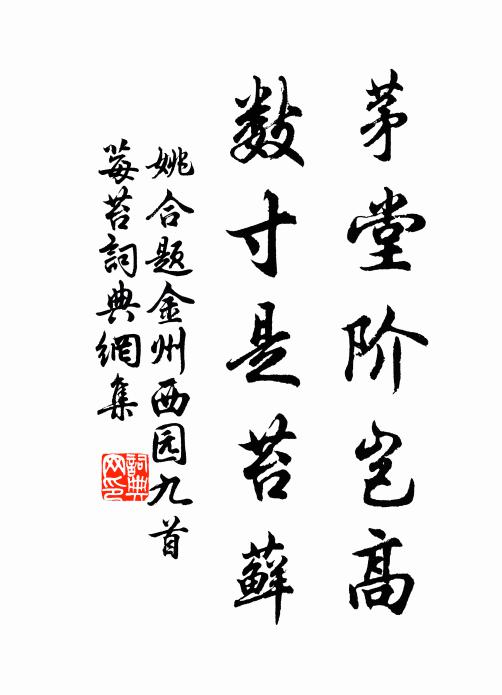 茅堂阶岂高
数寸是苔藓
姚合题金州西园九首
莓苔詞典網集
詞典网印